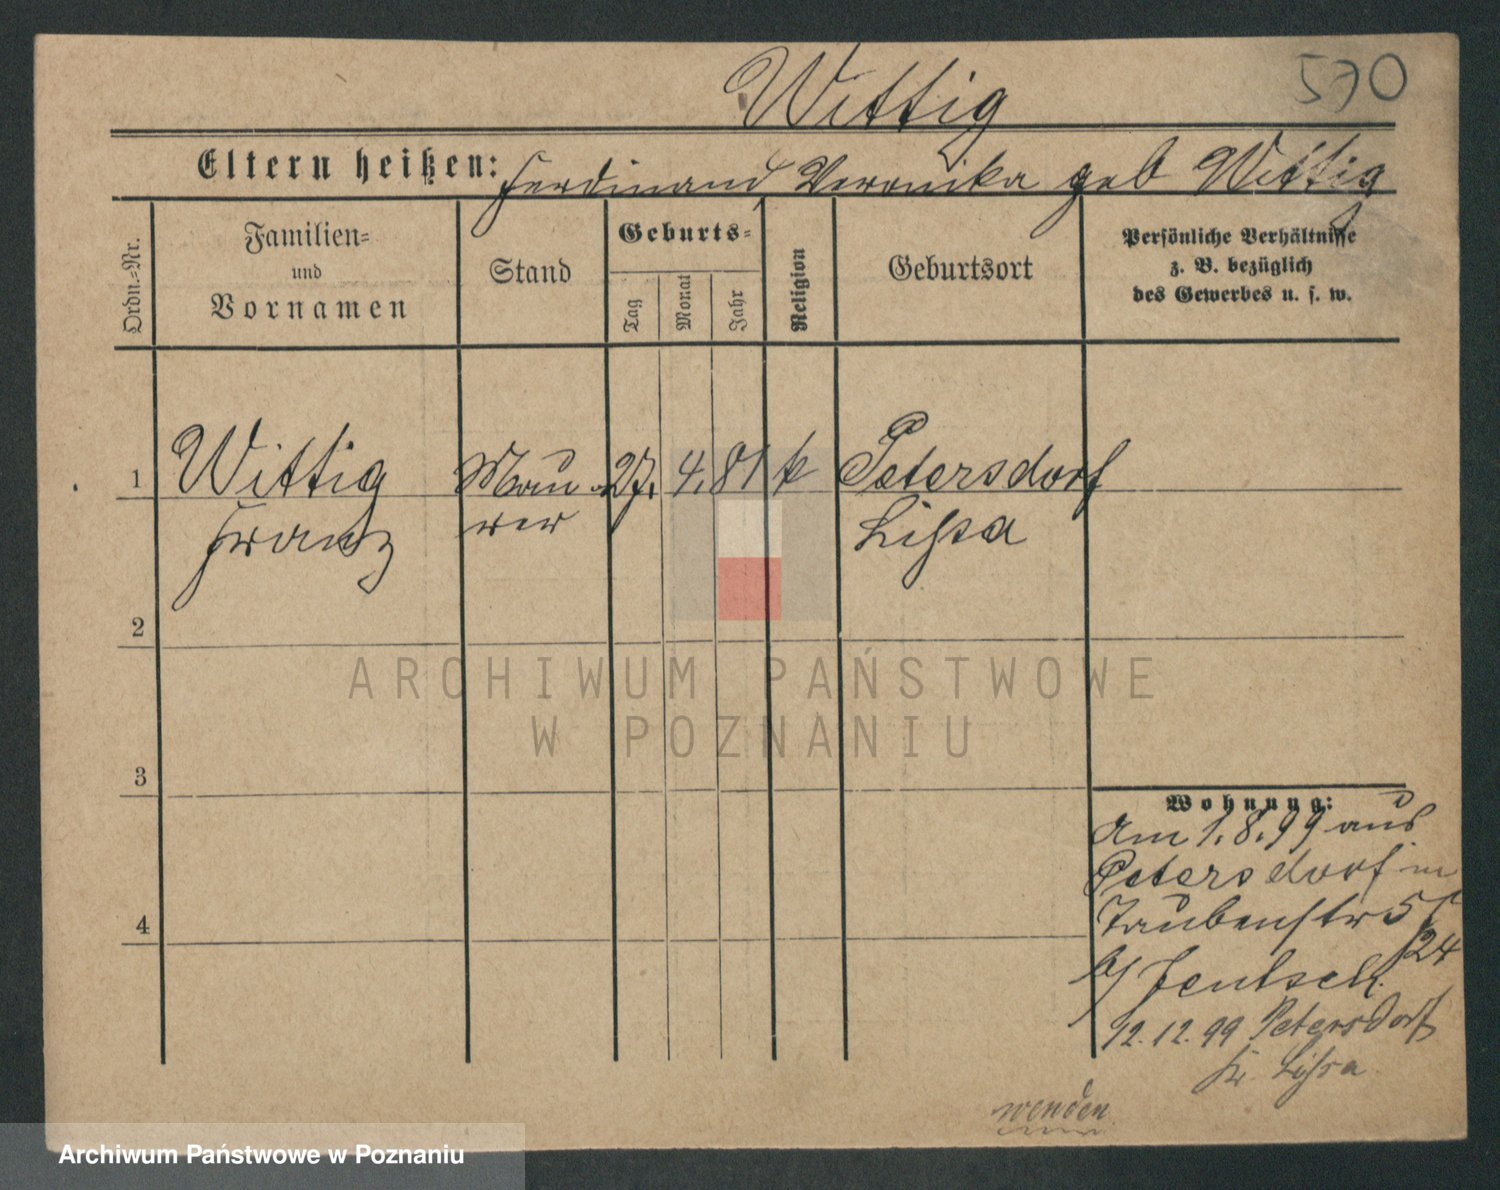 Wittig 570
Eltern heißen: Ferdinand, Veronika geb Wittig
Ordn.=Nr.
Familien=
und
Vornamen
Stand
Geburts=
Tag
Monat
Jahr
Religion
Geburtsort
Persönliche Verhältnisse
z. B. bezüglich
des Gewerbes u. s. w.
1 Wittig Mau 27. 4. 81 k Petersdorf
Franz rer Lissa
2
3
4
Wohnung:
Am 1.8.99 aus
Petersdorf in
Taubenstr 5
24
b/ Jentsch.
12.12.99 Petersdorf
Kr. Lissa
wenden
ARCHIWUM PAŃSTWOWE
W POZNANIU
Archiwum Państwowe w Poznaniu